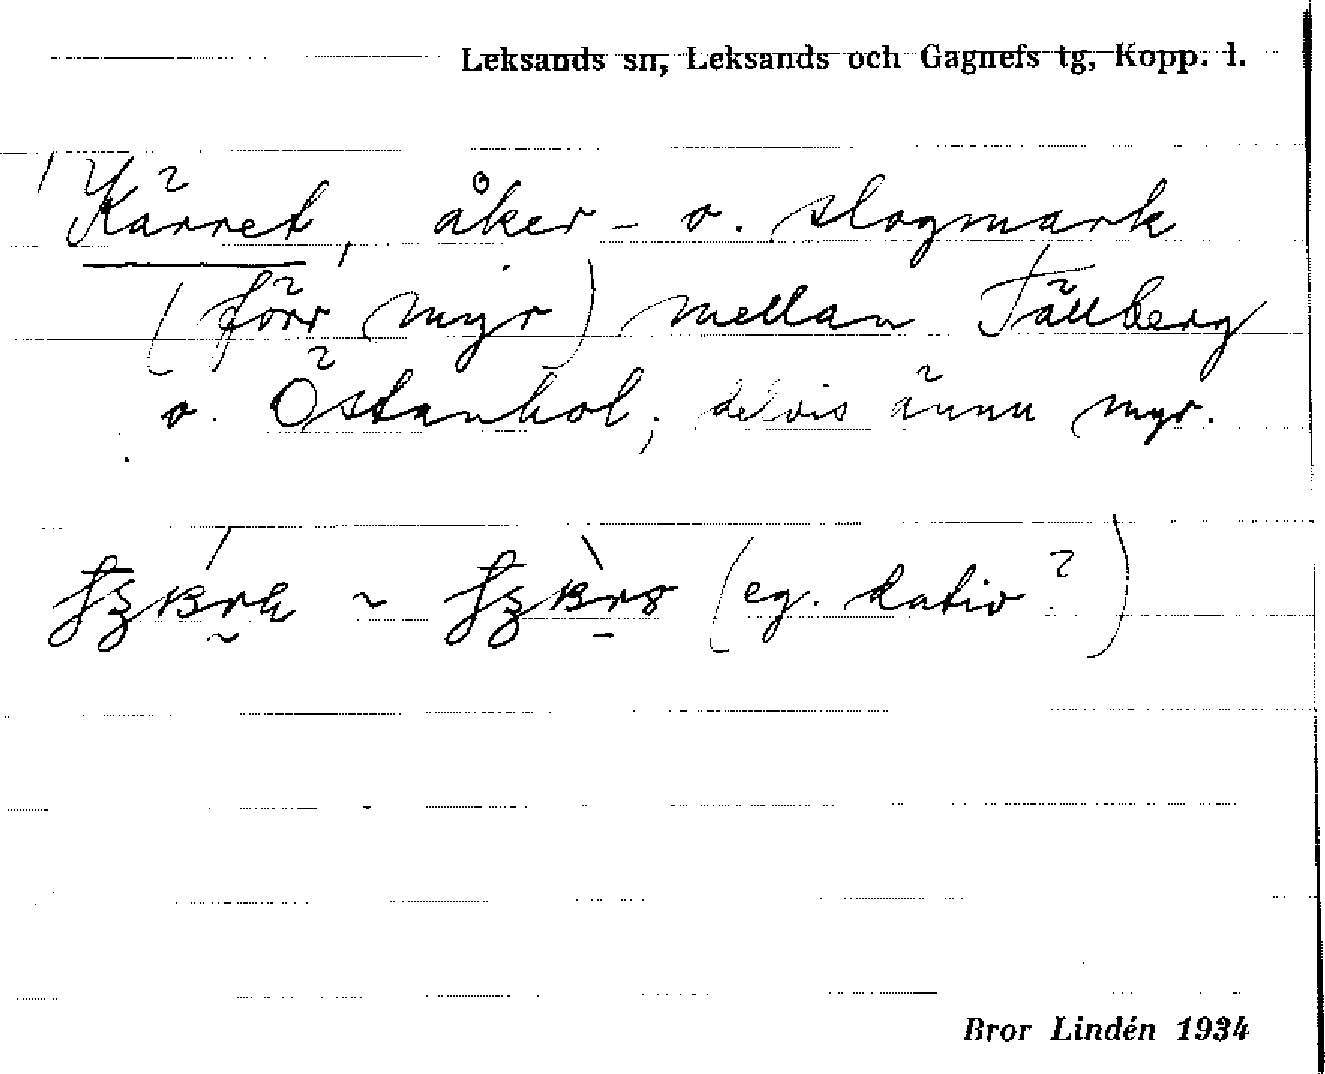 Leksands sn, Leksands och Gagnefs tg, Kopp. l.
Kärret, åker- o. slogmark
(förr myr) mellan Tällberg
o. Östanhol; delvis ännu myr.
~ (eg. dativ?)
Bror Lindén 1934